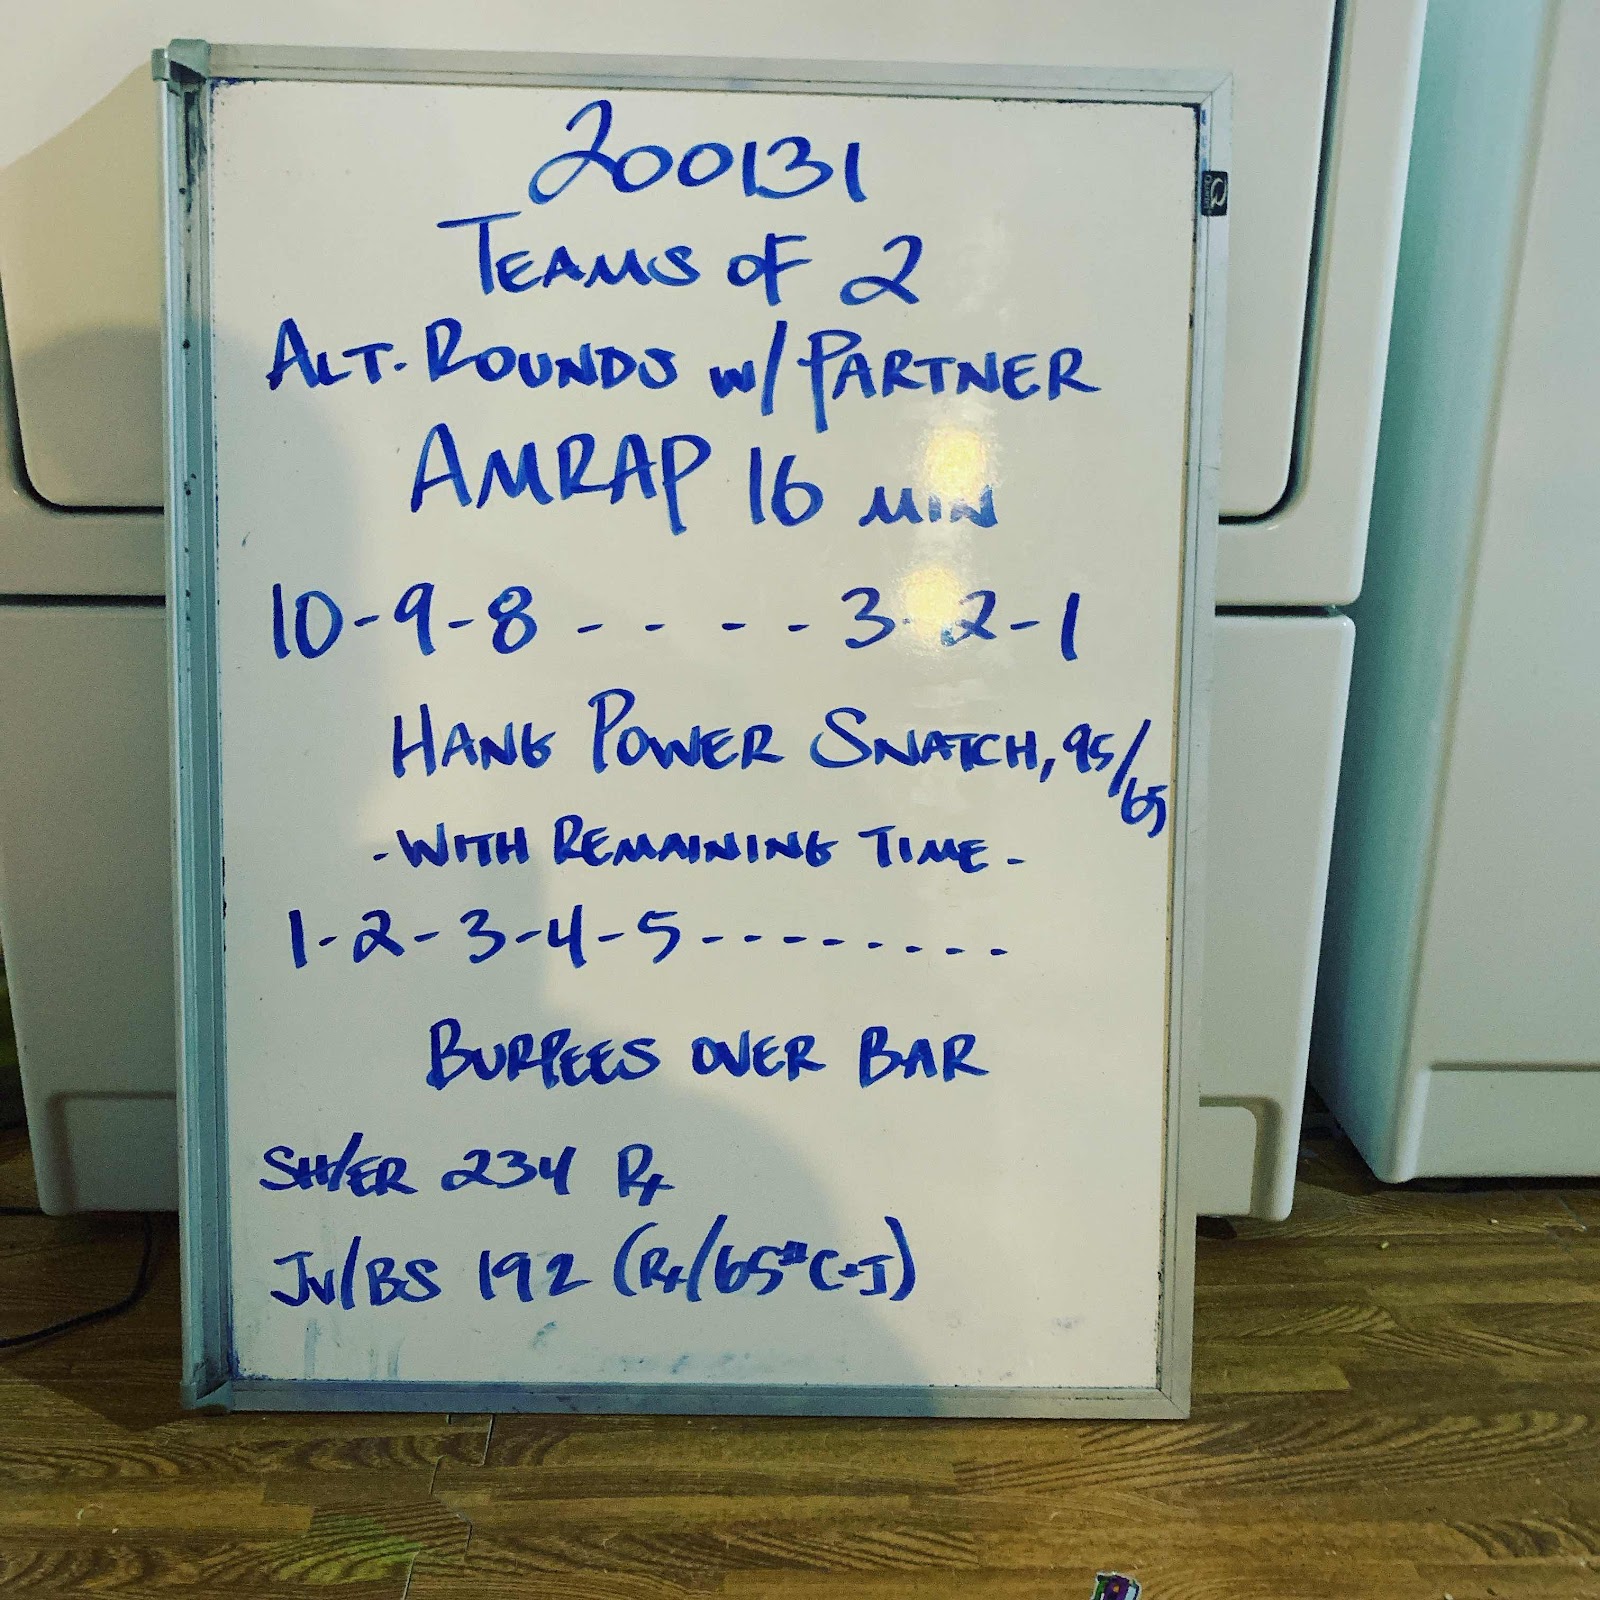 200131
TEAMS OF 2
ALT. ROUNDS W/ PARTNER
AMRAP 16 MIN
10-9-8 - - - - 3-2-1
HANG POWER SNATCH, 95/65
- WITH REMAINING TIME -
1-2-3-4-5- - - - - - - - -
BURPEES OVER BAR
SH/ER 234 Rx
JV/BS 192 (Rx/65# C+J)